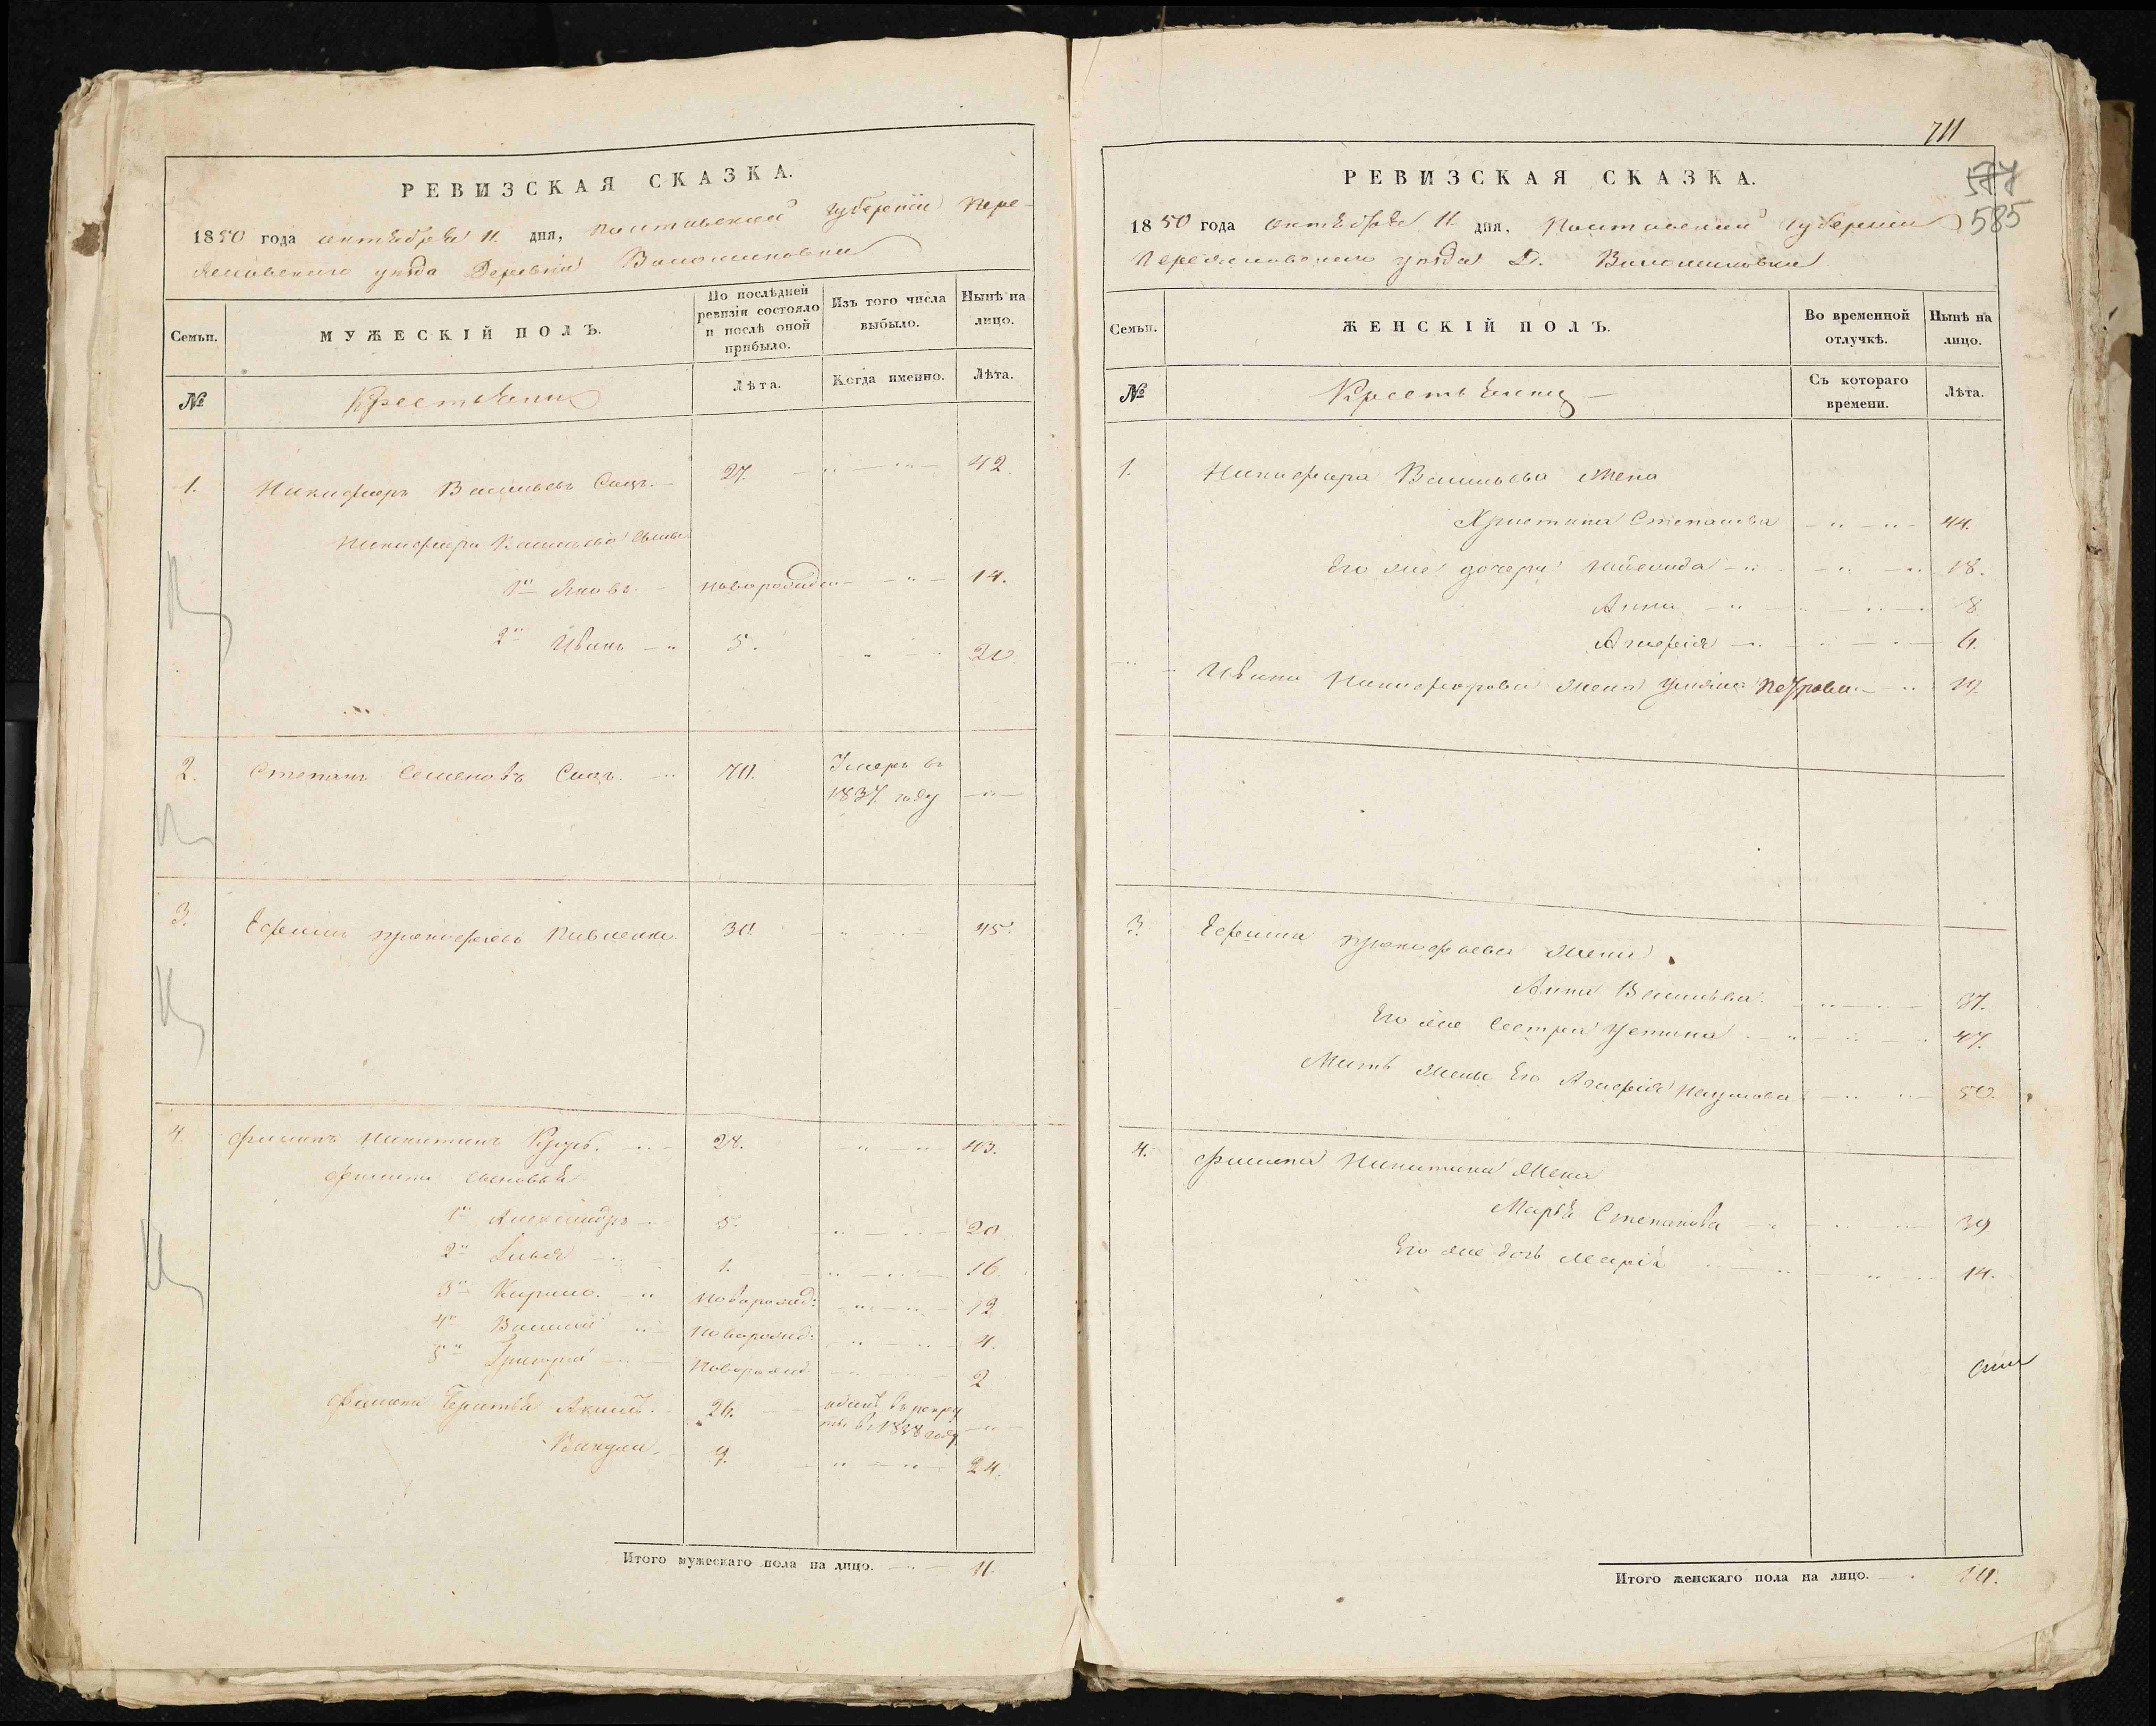 РЕВИЗСКАЯ СКАЗКА.
1850 года октября 11 дня, Полтавской губернии Пере-
яславского уезда Деревни
Семьи.
МУЖЕСКІЙ ПОЛЪ.
По послѣдней ревизіи состояло и послѣ оной прибыло.
Изъ того числа выбыло.
Нынѣ на лицо.
№
Крестьяни
Лѣта.
Когда именно.
Лѣта.
1. Никифоръ Васильевъ 27. 42.
Никифора Васильева сыны
1й Яковъ новорожден 14.
2й Иванъ 5. 20.
2. Степанъ Семеновъ 70. Умеръ въ
1837 году
3. Ефимъ Прокофьевъ Павленко 30. 45.
4. Филипъ Никитинъ 28. 43.
Филипа сыновья
1й Александръ 5. 20
2й Илья 1. 16
3й Кирило 12
4й Василій 4.
5й Григорій 2
Филипа братья Акимъ 26. отданъ въ рекру
ты въ 1838 году
Викула 9. 24.
Итого мужескаго пола на лицо. 11.
711
577
585
РЕВИЗСКАЯ СКАЗКА.
1850 года октября 11 дня, Полтавской губернии
Переяславского уезда Д.
Семьи.
ЖЕНСКІЙ ПОЛЪ.
Во временной отлучкѣ.
Нынѣ на лицо.
№
Съ котораго времени.
Лѣта.
1. Никифора Васильева жена
Христина Степанова 44.
Его же дочери 18.
Анна 8
Агафія 6.
Ивана Никифорова жена Ульяна Петрова 19
3. Ефима Прокофьева жена
Анна Васильева 37.
Его же сестра Устина 47.
Мать жены его Агафія Наумова 50.
4. Филипа Никитина жена
Марья Степанова 39
Его же дочь Марія 14.
Итого женскаго пола на лицо. 10.